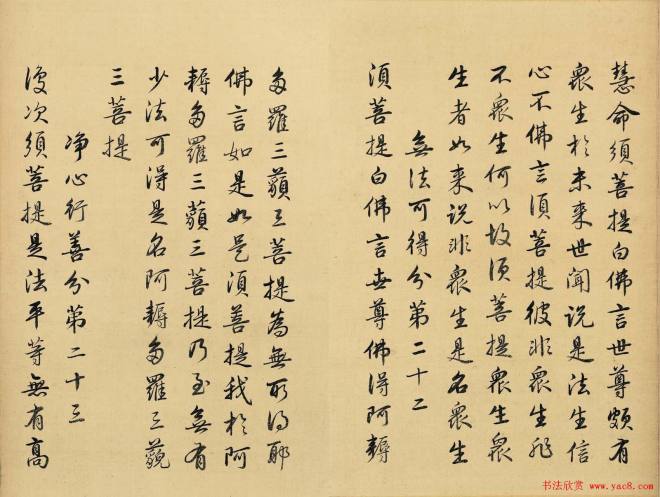 慧命須菩提白佛言世尊頗有
衆生於未來世聞說是法生信
心不佛言須菩提彼非衆生非
不衆生何以故須菩提衆生衆
生者如来說非衆生是名衆生
無法可得分第二十二
須菩提白佛言世尊佛得阿耨
多羅三藐三菩提為無所得耶
佛言如是如是須菩提我於阿
耨多羅三藐三菩提乃至無有
少法可得是名阿耨多羅三藐
三菩提
净心行善分第二十三
復次須菩提是法平等無有高
书法欣赏
www.yac8.com